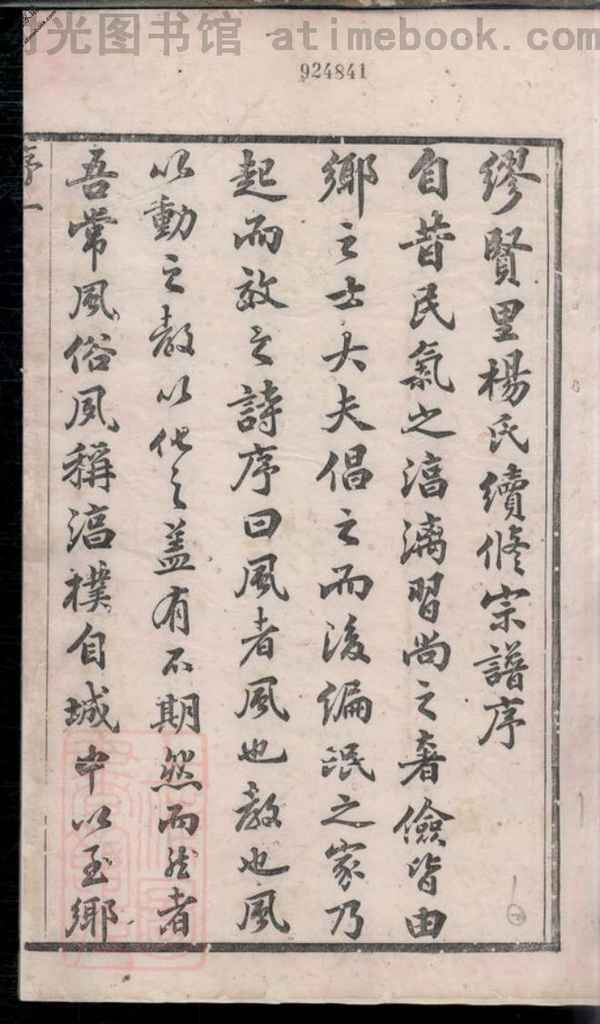 时光图书馆 atimebook.com
924841
繆賢里楊氏續修宗譜序
自昔民氣之湻漓習尚之奢儉皆由
鄉之士大夫倡之而後編氓之家乃
起而效之詩序曰風者風也教也風
以動之教以化之蓋有不期然而然者
吾常風俗夙稱湻樸自城中以至鄉
序一